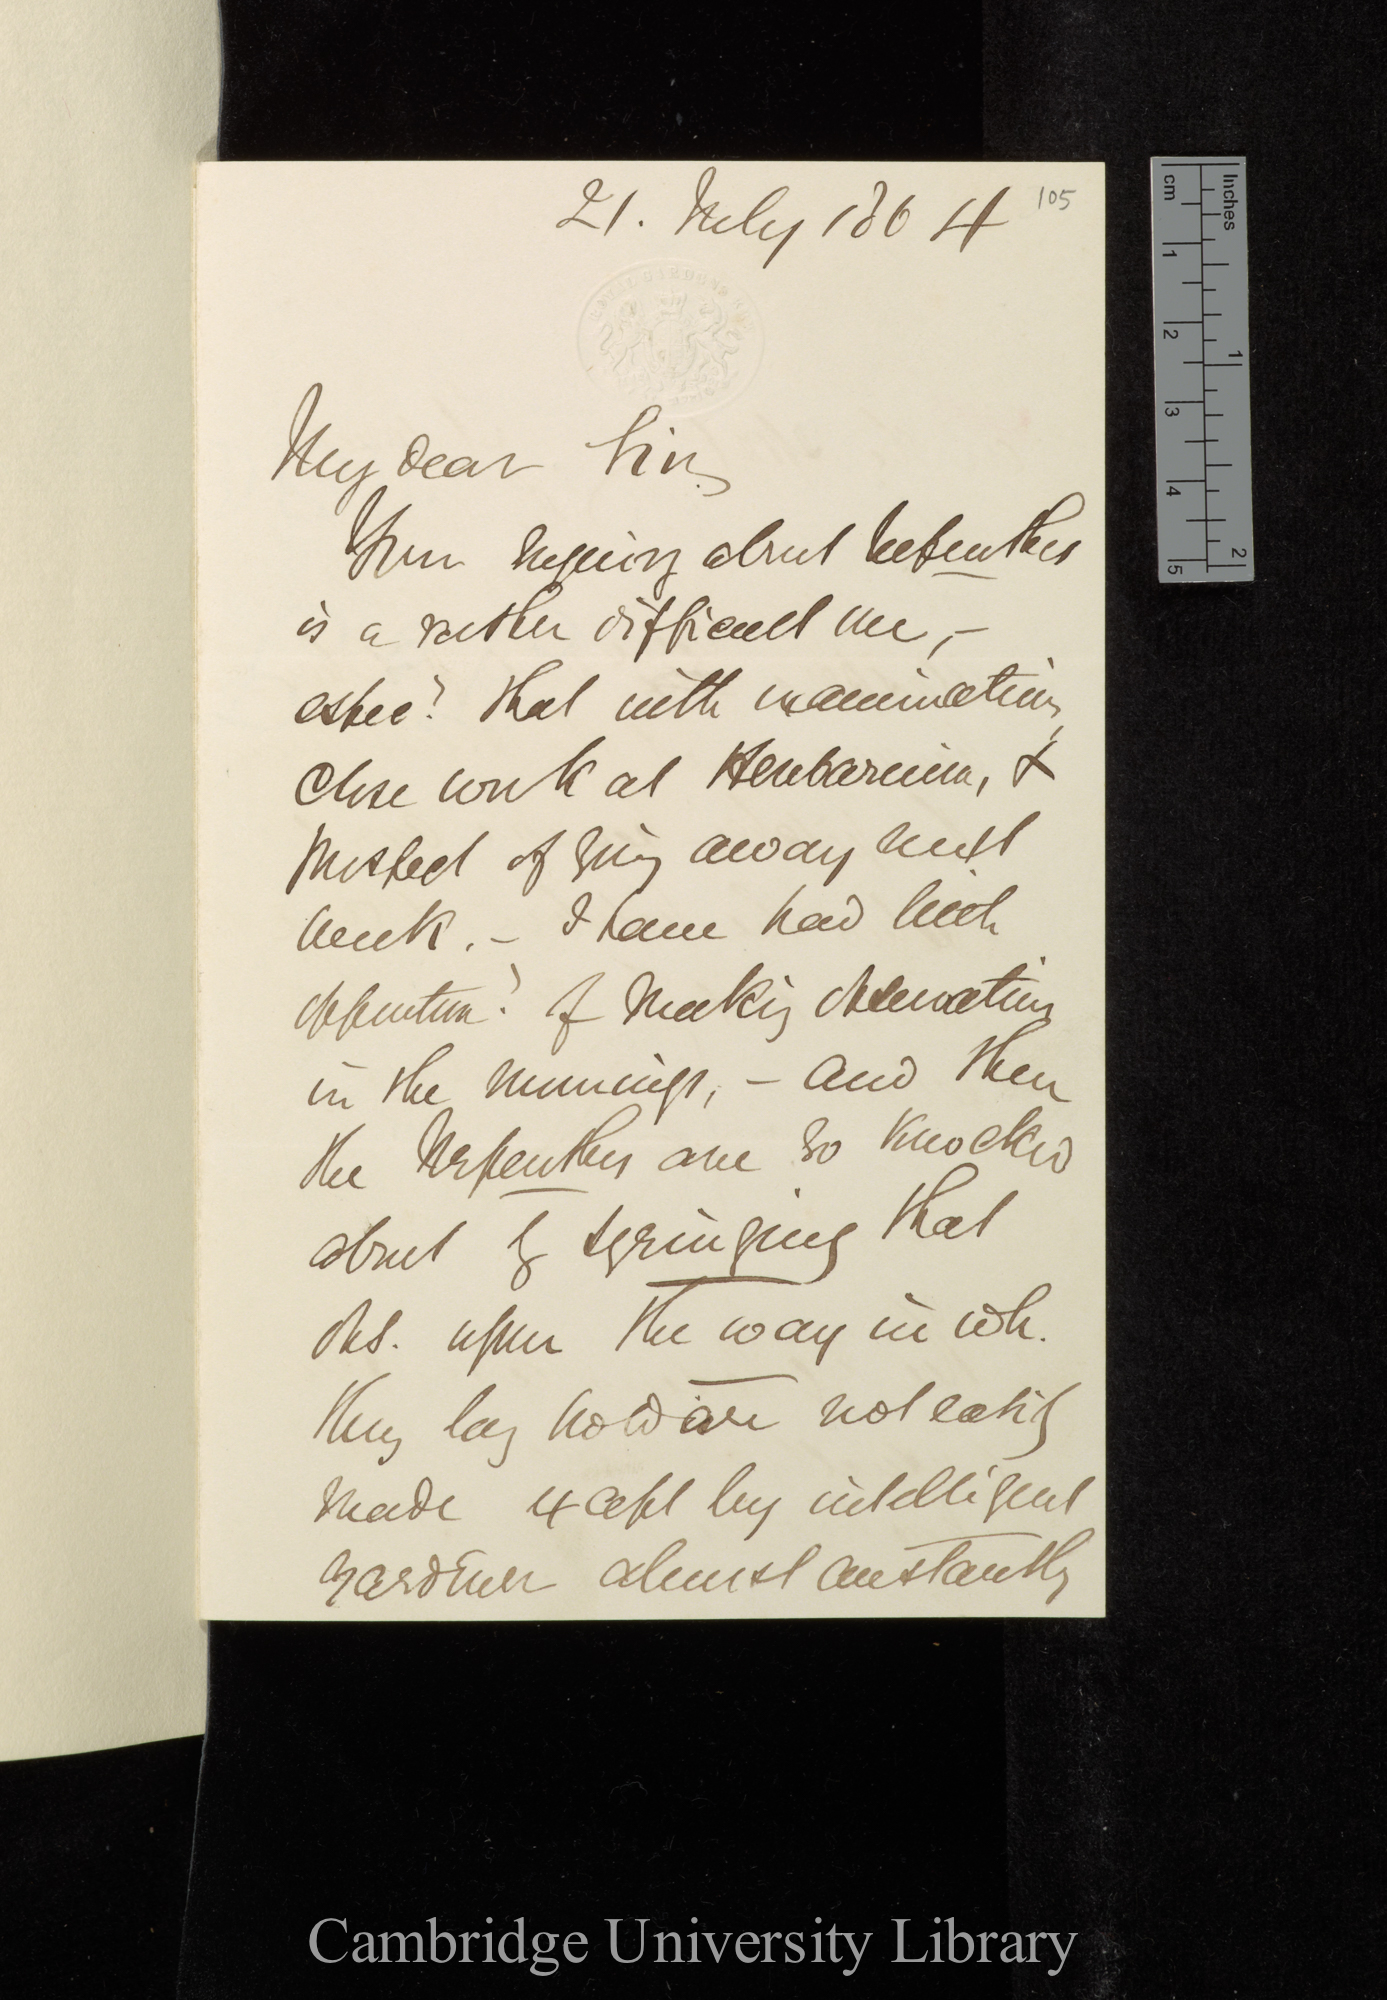 105
21. July 1864
My dear Sir,
Your inquiry about Nepenthes
is a rather difficult one, –
espec? that with examinations,
close work at Herbarium, &
prospect of going away next
week. – I have had little
opportun? of making observations
in the mornings, – and then
the Nepenthes are so knocked
about by syringing that
obs. upon the way in wh.
they lay hold are not easily
made except by intelligent
gardener almost constantly
Inches
1
2
cm
1
2
3
4
5
Cambridge University Library